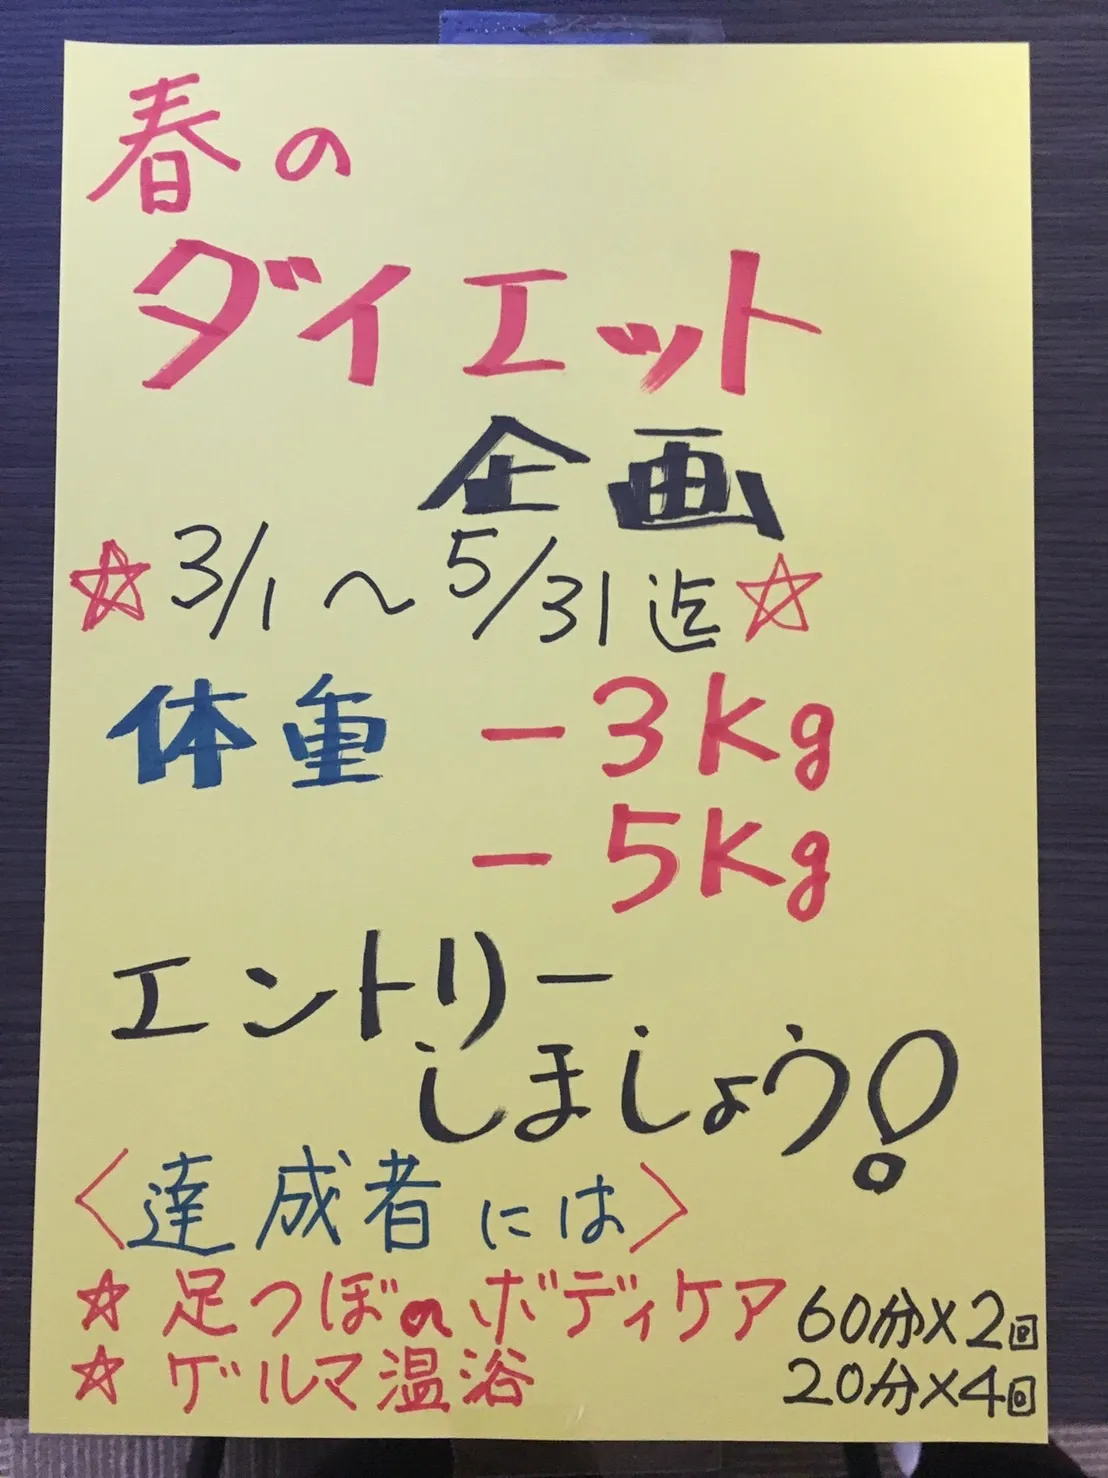 春の
ダイエット
企画
☆3/1～5/31迄☆
体重 －3Kg
－5Kg
エントリー
しましょう!
〈達成者には〉
☆足つぼorボディケア 60分×2回
☆ゲルマ温浴 20分×4回